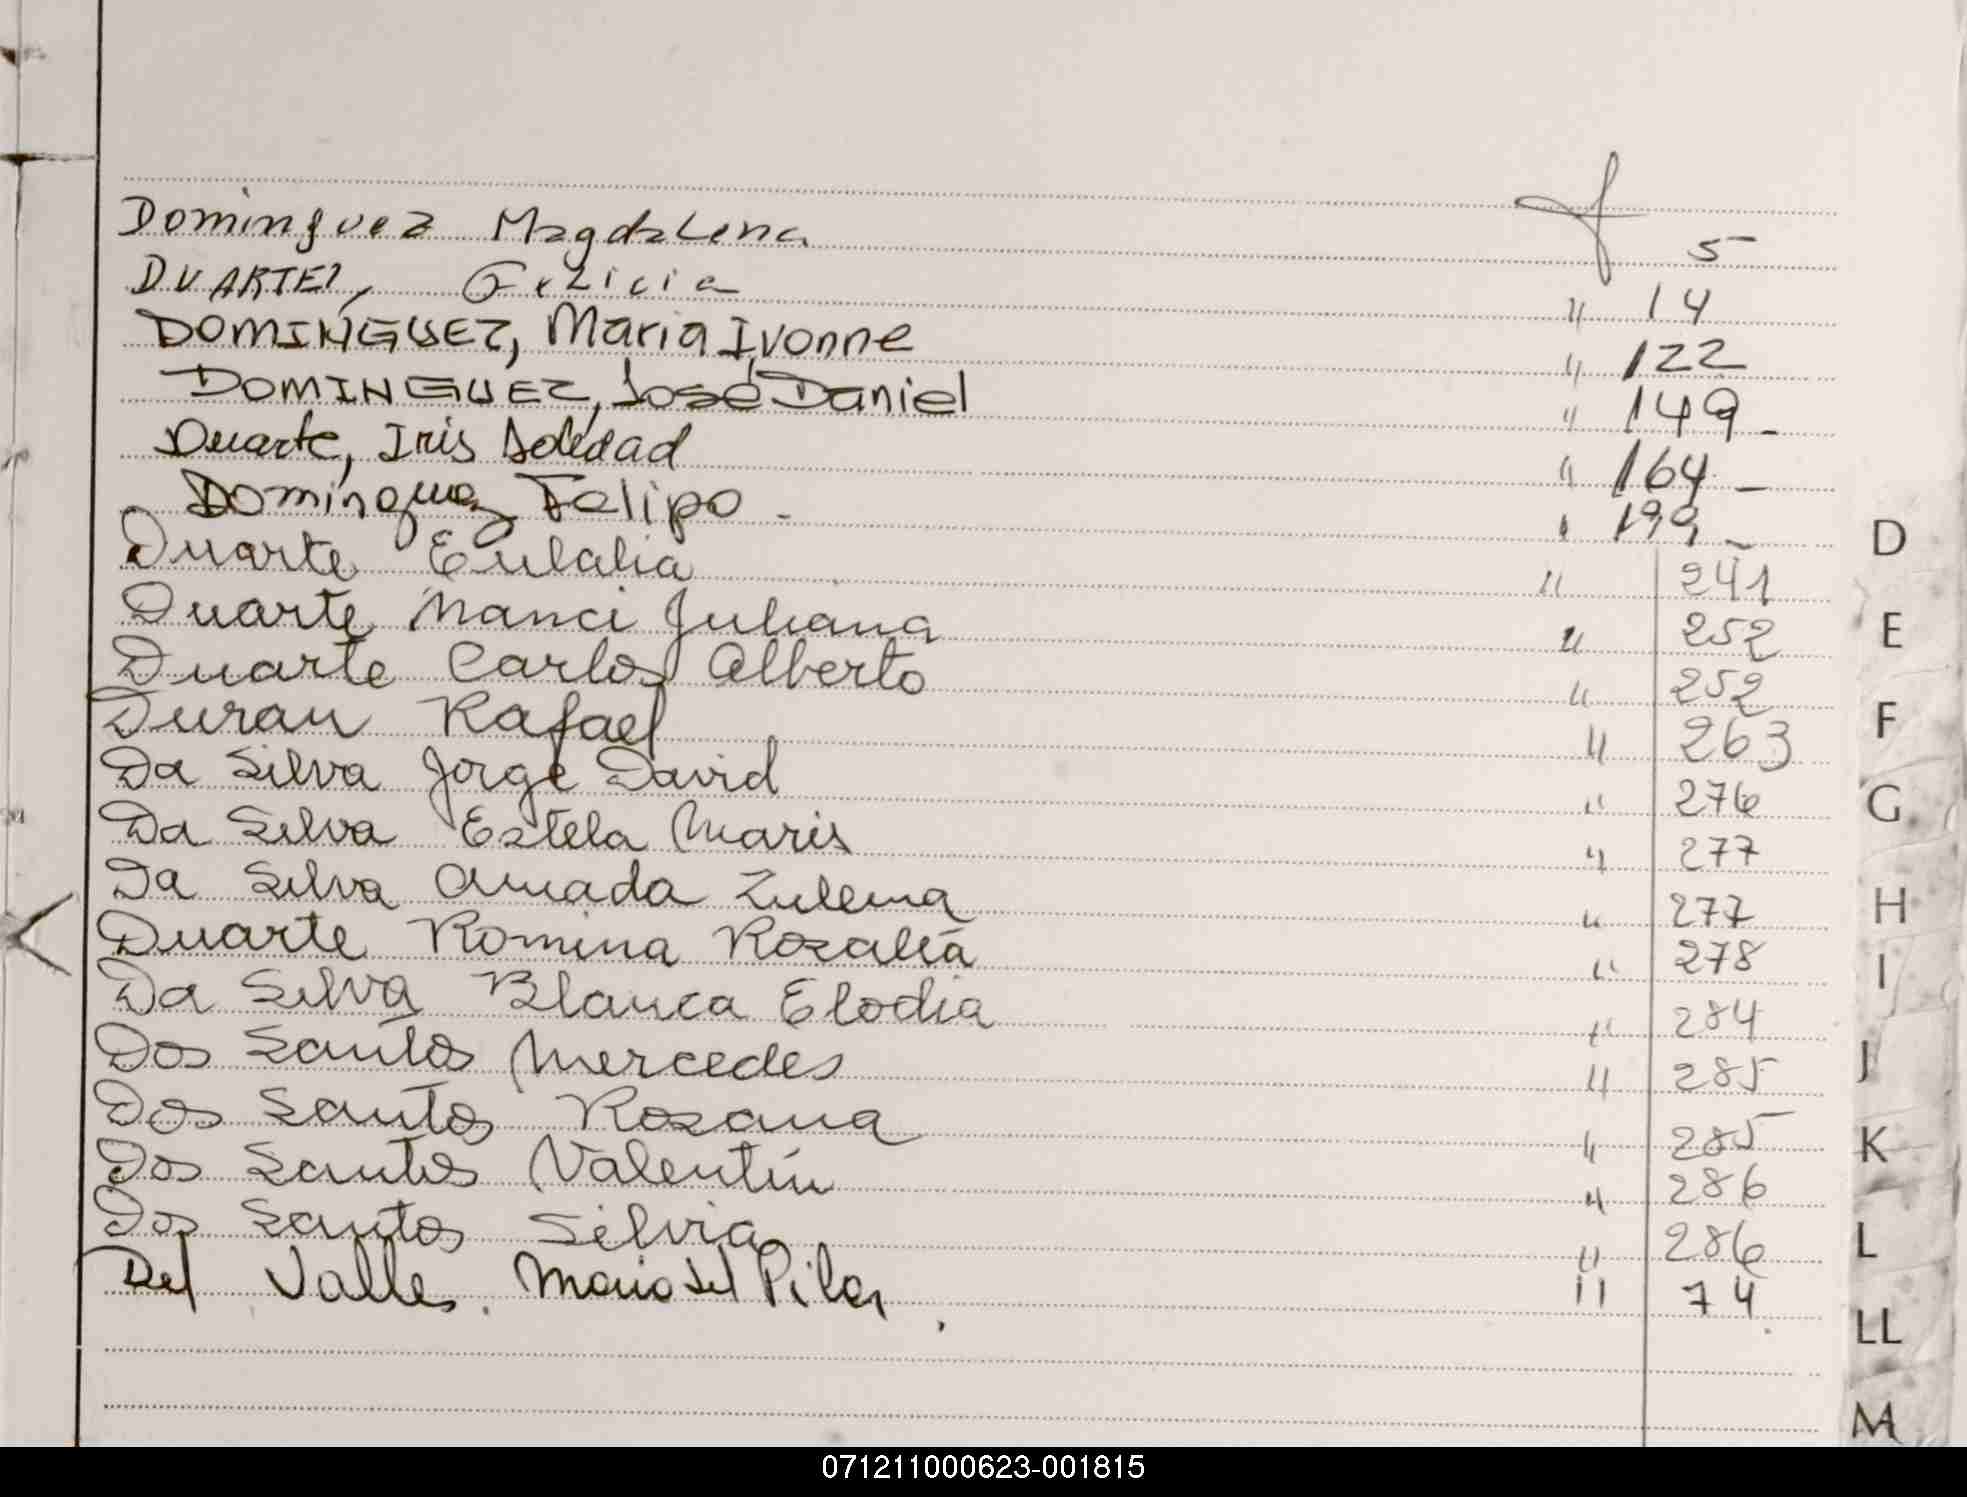 Dominguez Magdalena f 5
DUARTEZ, Felicia " 14
DOMINGUEZ, Maria Ivonne " 122
DOMINGUEZ, José Daniel " 149 -
Duarte, Iris Soledad " 164 -
Dominguez Felipo - " 199 -
Duarte Eulalia " 241
Duarte Nanci Juliana " 252
Duarte Carlos Alberto " 252
Duran Rafael " 263
Da Silva Jorge David " 276
Da Silva Estela Maris " 277
Da Silva Amada Zulema " 277
Duarte Romina Rosalia " 278
Da Silva Blanca Elodia " 284
Dos Santos Mercedes " 285
Dos Santos Rosana " 285
Dos Santos Valentín " 286
Dos Santos Silvia " 286
Del Valle. Maria del Pilar. " 74.
D
E
F
G
H
I
J
K
L
LL
M
071211000623-001815